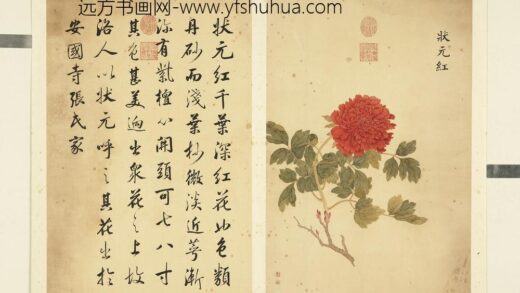 远方书画网：www.yfshuhua.com
狀元紅
狀元紅千葉深紅花也色類
丹砂而淺葉杪微淡近萼漸
深有紫檀心開頭可七八寸
其色甚美迥出衆花之上故
洛人以狀元呼之其花出於
安國寺張氏家